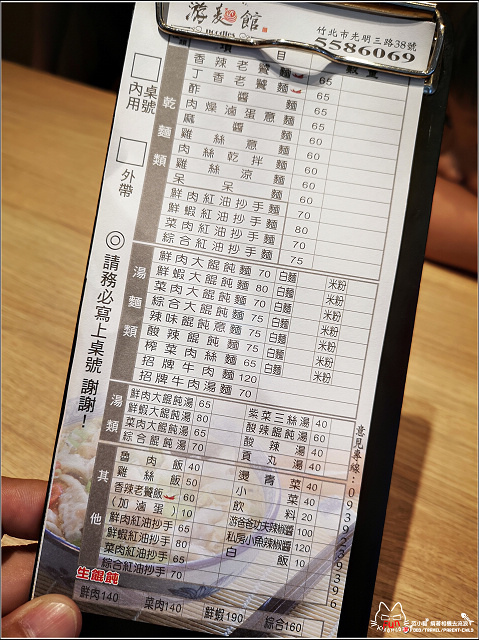 游麵館
noodles
竹北市光明三路38號
5586069
項目 數量
桌號
內用
外帶
◎請務必寫上桌號 謝謝！
乾麵類
香辣老饕麵 65
丁香老饕麵 65
酢醬麵 60
肉燥滷蛋意麵 65
麻醬麵 60
雞絲意麵 60
肉絲乾拌麵 60
雞絲涼麵 60
呆呆麵
鮮肉紅油抄手麵 70
鮮蝦紅油抄手麵 80
菜肉紅油抄手麵 70
綜合紅油抄手麵 75
湯麵類
鮮肉大餛飩麵 70 白麵 米粉
鮮蝦大餛飩麵 80 白麵 米粉
菜肉大餛飩麵 70 白麵 米粉
綜合大餛飩麵 75 白麵 米粉
辣味餛飩意麵 75
酸辣餛飩麵 75 白麵 米粉
榨菜肉絲麵 65 白麵 米粉
招牌牛肉麵 120
招牌牛肉湯麵 70
湯類
鮮肉大餛飩湯 65 紫菜三絲湯 40
鮮蝦大餛飩湯 80 酸辣餛飩湯 60
菜肉大餛飩湯 65 酸辣湯 40
綜合餛飩湯 70 貢丸湯 40
其他
魯肉飯 40 燙青菜 40
雞絲飯 50 小菜 40
香辣老饕飯 60 飲料 20
(加滷蛋) 10 游爸爸功夫辣椒醬 100
鮮肉紅油抄手 65 私房小魚辣椒醬 120
鮮蝦紅油抄手 80 白飯 10
菜肉紅油抄手 65
綜合紅油抄手 70
生餛飩
鮮肉140 菜肉140 鮮蝦190 綜合160
意見專線：0939239396